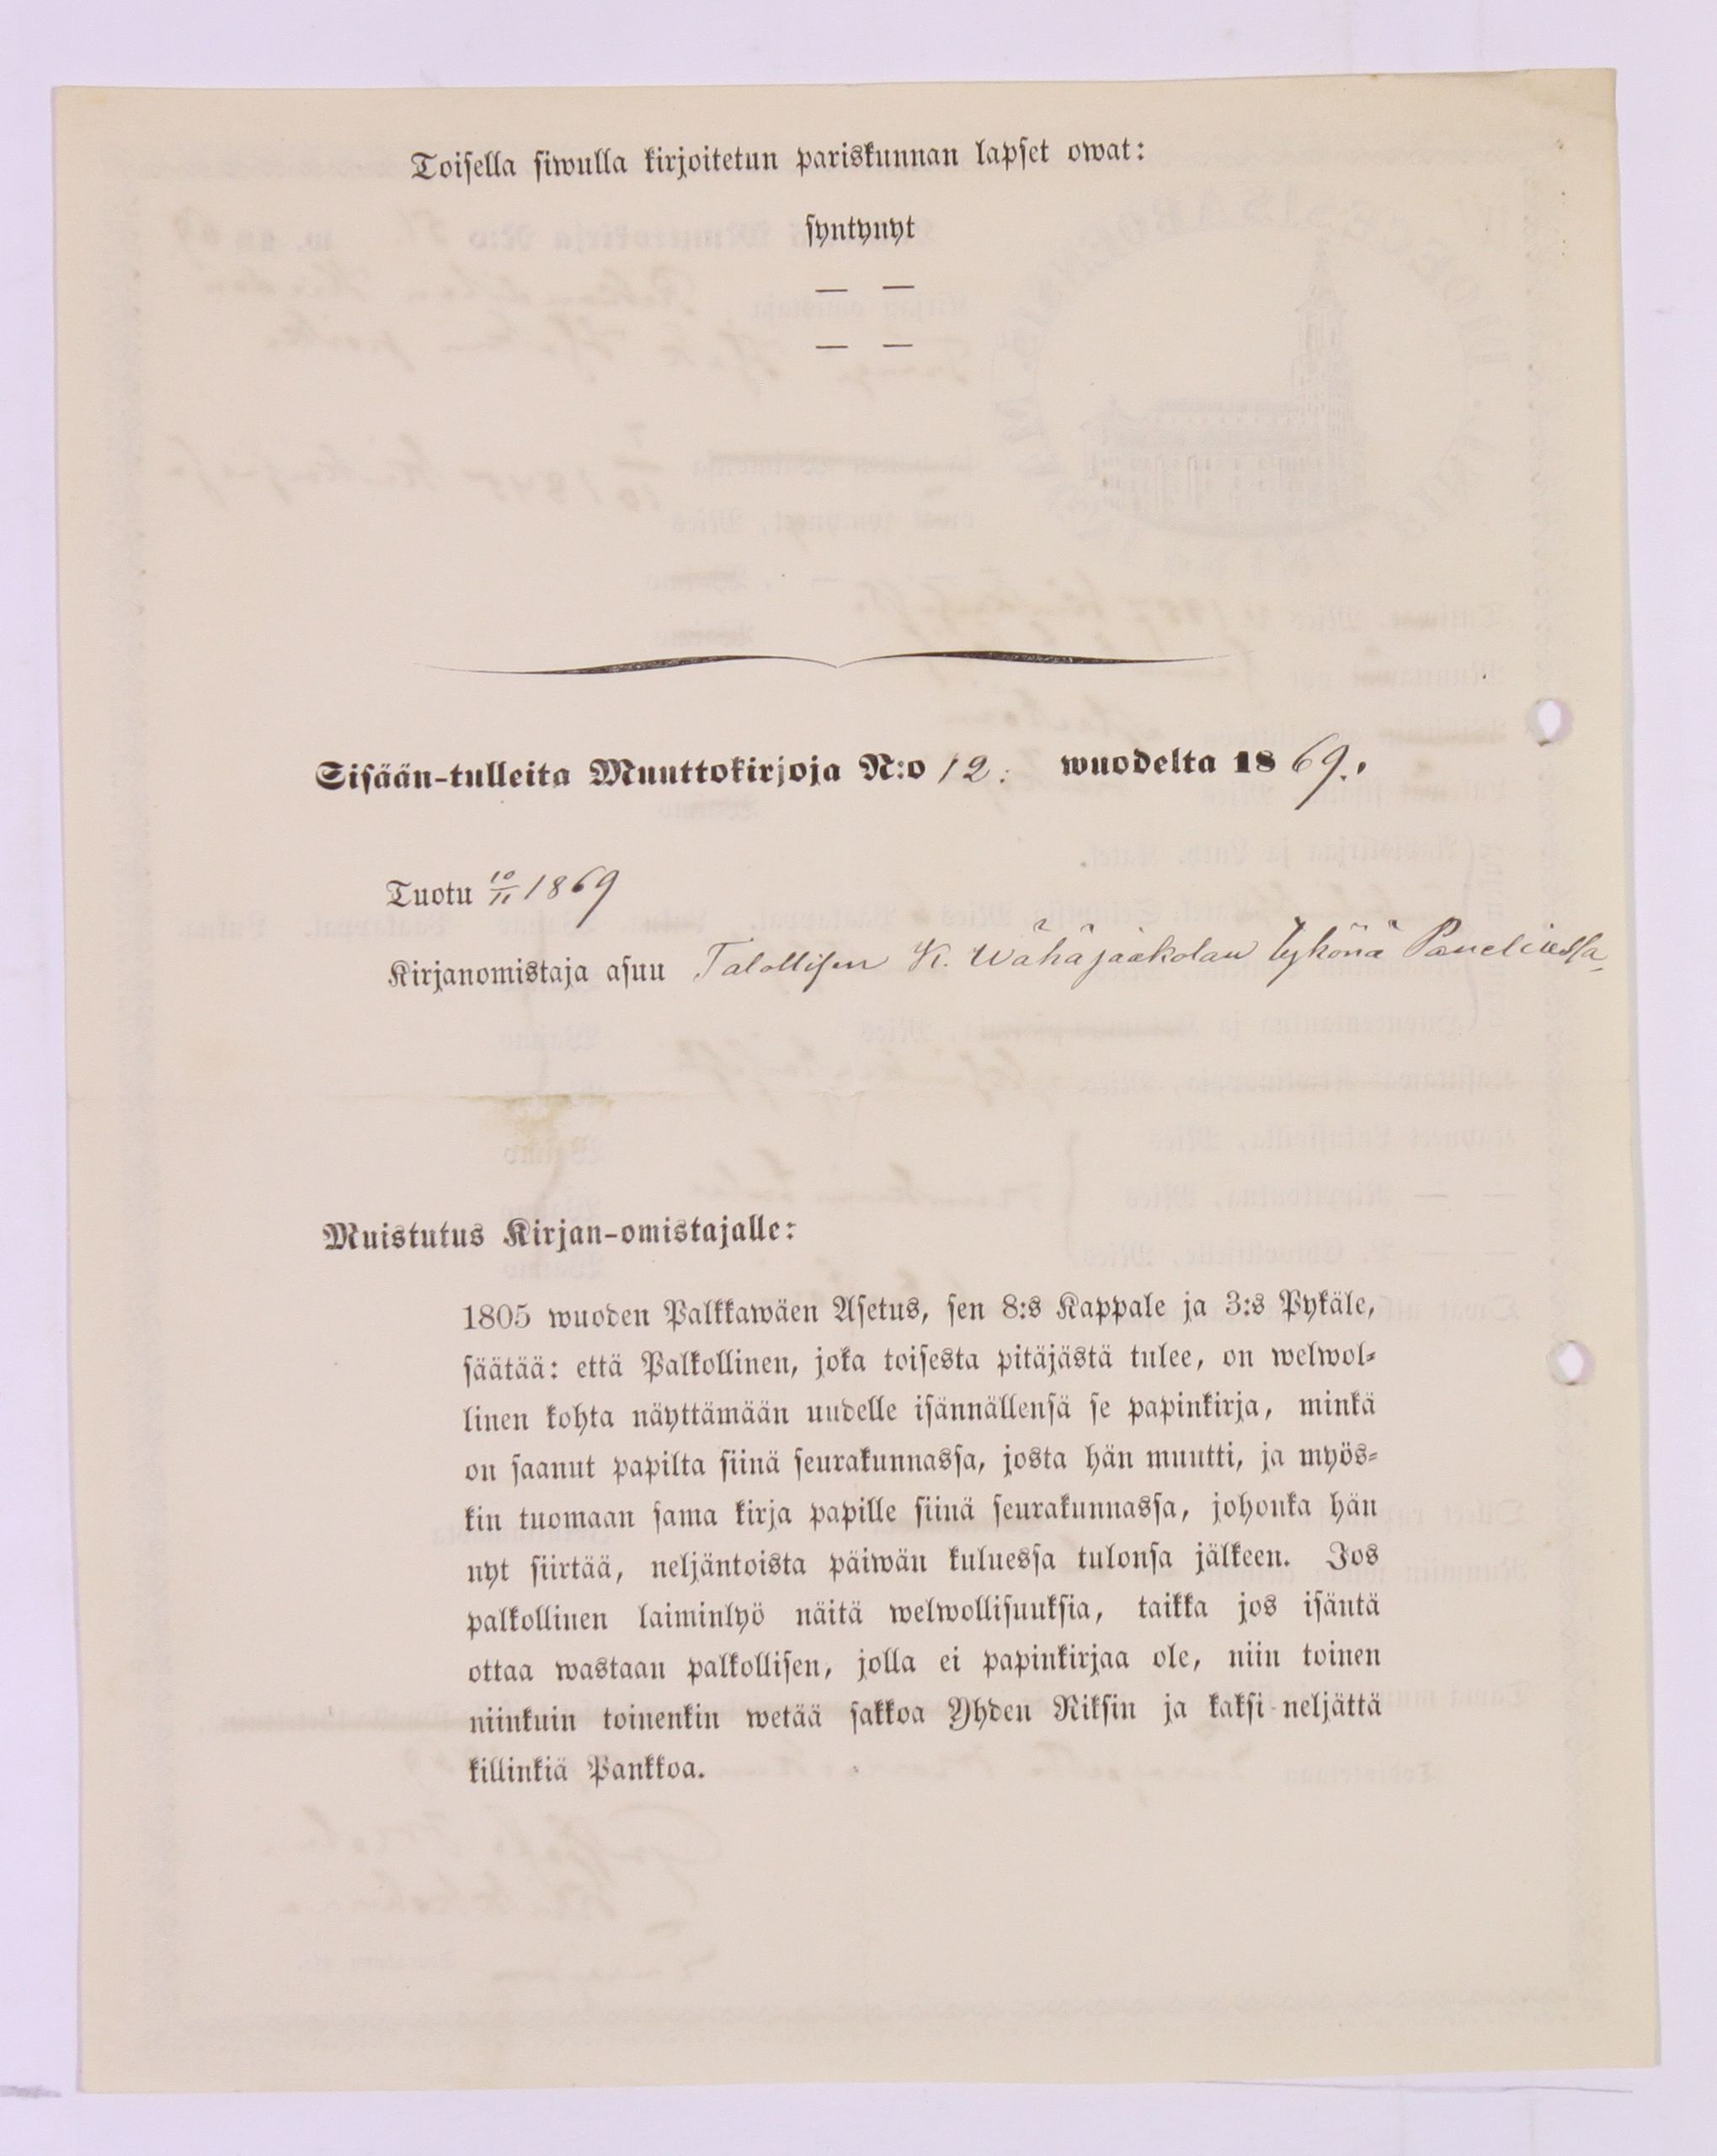 Toisella siwulla kirjoitetun pariskunnan lapset owat:
syntynyt
— —
— —
Sisään-tulleita Muuttokirjoja N:o 12. wuodelta 1869.
Tuotu 10/11 1869
Kirjanomistaja asuu Talollisen K. Wähäjaakolan tykönä Paneliassa
Muistutus Kirjan-omistajalle:
1805 wuoden Palkkawäen Asetus, sen 8:s Kappale ja 3:s Pykäle,
säätää: että Palkollinen, joka toisesta pitäjästä tulee, on welwol-
linen kohta näyttämään uudelle isännällensä se papinkirja, minkä
on saanut papilta siinä seurakunnassa, josta hän muutti, ja myös-
kin tuomaan sama kirja papille siinä seurakunnassa, johonka hän
nyt siirtää, neljäntoista päiwän kuluessa tulonsa jälkeen. Jos
palkollinen laiminlyö näitä welwollisuuksia, taikka jos isäntä
ottaa wastaan palkollisen, jolla ei papinkirjaa ole, niin toinen
niinkuin toinenkin wetää sakkoa Yhden Riksin ja kaksi neljättä
killinkiä Pankkoa.